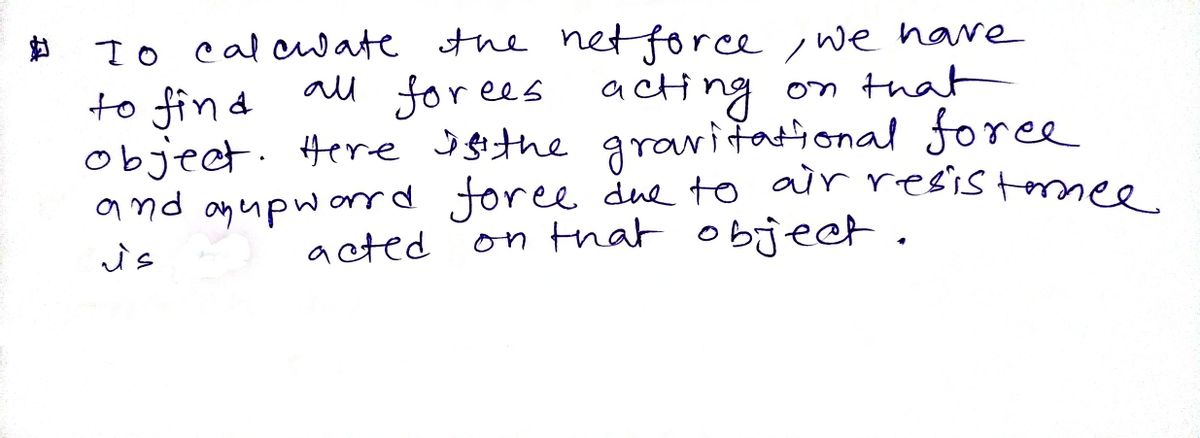 To calculate the net force, we have
to find all forces acting on that
object. Here is the gravitational force
and an upward force due to air resistance
is acted on that object.